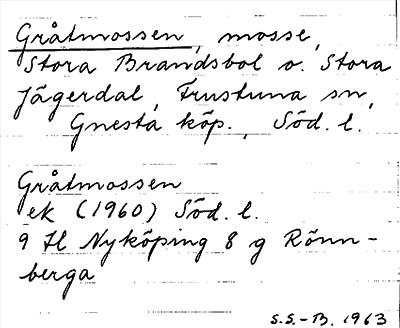 Gråtmossen, mosse,
Stora Brandsbol o. Stora
Jägerdal, Frustuna sn,
Gnesta köp., Söd. l.
Gråtmossen
ek (1960) Söd. l.
9 H1 Nyköping 8 g Rönn-
berga
S.S.-B. 1963